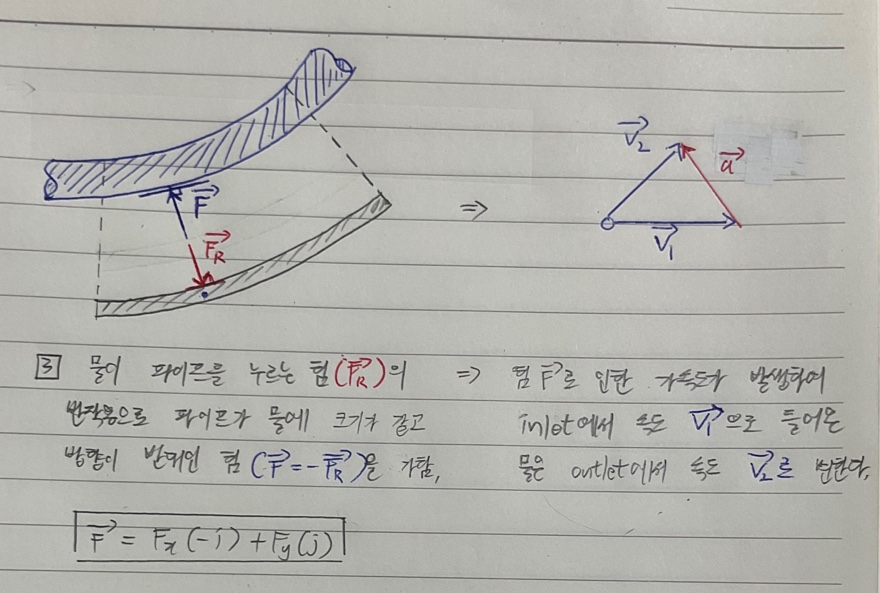 F
F_R
⇒
V₂
a
V₁
3 물이 파이프를 누르는 힘(F_R)의
반작용으로 파이프가 물에 크기가 같고
방향이 반대인 힘 (F=-F_R)을 가함,
⇒ 힘 F로 인한 가속도가 발생하여
inlet에서 속도 V₁으로 들어온
물은 outlet에서 속도 V₂로 변한다,
F = Fx(-i) + Fy(j)